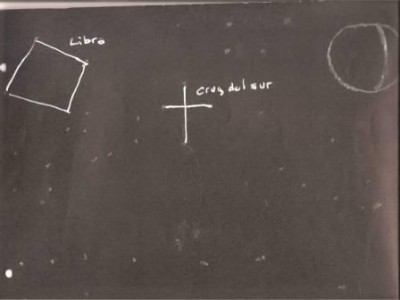 Libra
cruz del sur